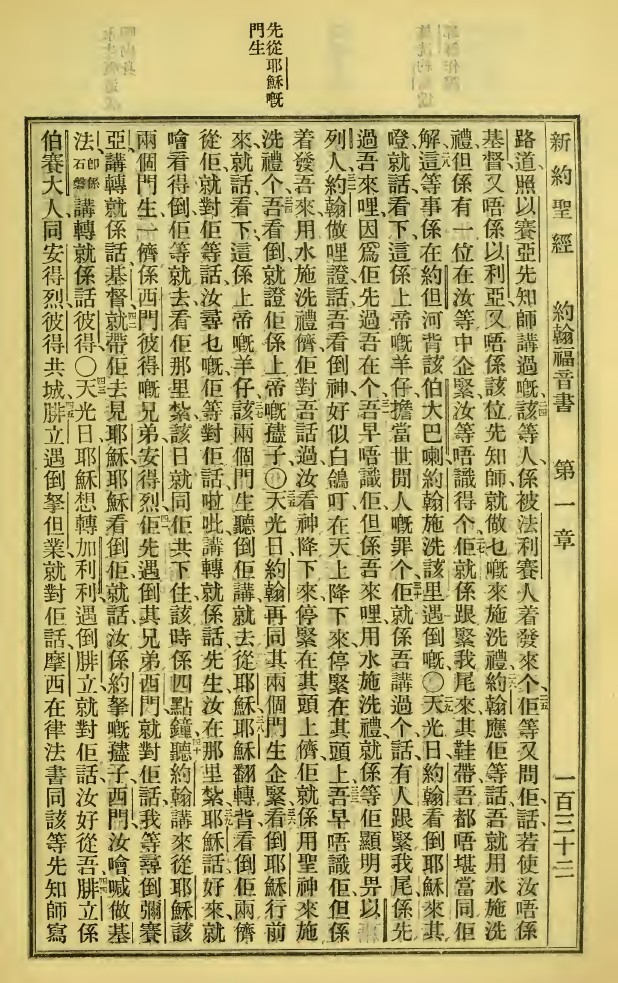 先從耶穌嘅
門生
新約聖經 約翰福音書 第一章 一百三十二
路道照以賽亞先知師講過嘅該等人係被法利賽人着發來个佢等又問佢話若使汝唔係
基督又唔係以利亞又唔係該位先知師就做乜嘅來施洗禮約翰應佢等話吾就用水施洗
禮但係有一位在汝等中企緊汝等唔識得个佢就係跟緊我尾來其鞋帶吾都唔堪當同佢
解這等事係在約但河背該伯大巴喇約翰施洗該里遇倒嘅〇天光日約翰看倒耶穌來其
噔就話看下這係上帝嘅羊仔擔當世間人嘅罪个佢就係吾講過个話有人跟緊我尾係先
過吾來哩因爲佢先過吾在个吾早唔識佢但係吾來哩用水施洗禮就係等佢顯明畀以
列人約翰做哩證話吾看倒神好似白鴿叮在天上降下來停緊在其頭上吾早唔識佢但係
着發吾來用水施洗禮儕佢對吾話過汝看神降下來停緊在其頭上儕佢就係用聖神來施
洗禮个吾看倒就證佢係上帝嘅孻子〇天光日約翰再同其兩個門生企緊看倒耶穌行前
來就話看下這係上帝嘅羊仔該兩個門生聽倒佢講就去從耶穌耶穌翻轉背看倒佢兩儕
從佢就對佢等話汝尋乜嘅佢等對佢話啦吡講轉就係話先生汝在那里紮耶穌話好來就
噲看得倒佢等就去看佢那里紮該日就同佢共下住該時係四點鐘聽約翰講來從耶穌該
兩個門生一儕係西門彼得嘅兄弟安得烈佢先遇倒其兄弟西門就對佢話我等尋倒彌賽
亞講轉就係話基督就帶佢去見耶穌耶穌看倒佢就話汝係約拏嘅孻子西門汝噲喊做基
法卽係石磐講轉就係話彼得〇天光日耶穌想轉加利利遇倒腓立就對佢話汝好從吾腓立係
伯賽大人同安得烈彼得共城腓立遇倒拏但業就對佢話摩西在律法書同該等先知師寫